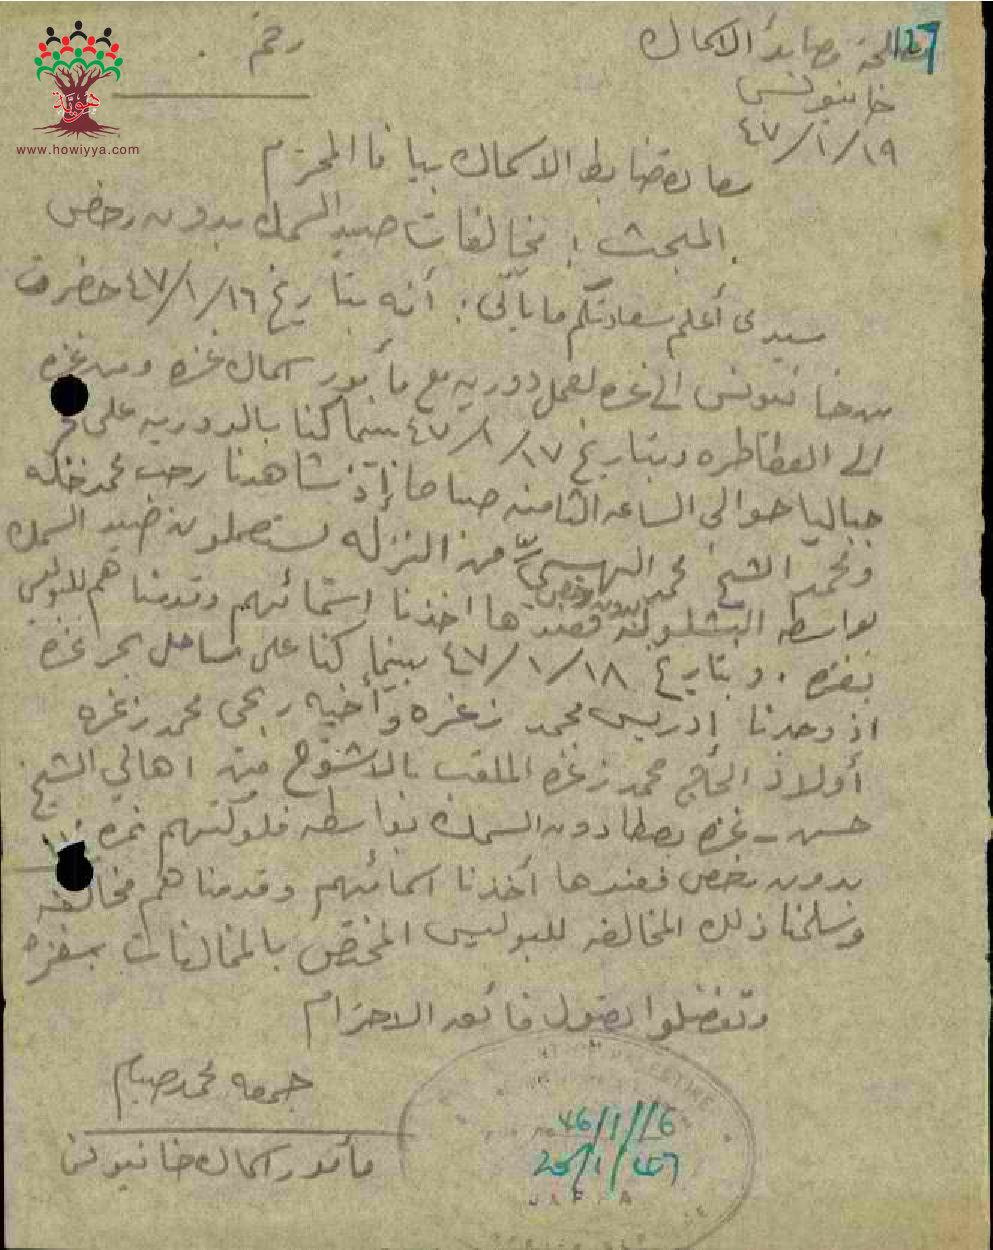 127
مصلحة مصايد الاسماك
رقم .
خانيونس
١٩/١/٤٧
هوية
www.howiyya.com
سعادة ضابط الاسماك بيافا المحترم
المبحث : مخالفات صيد السمك بدون رخص
سيدي أعلم سعادتكم ما يأتي : أنه بتاريخ ١٦/١/٤٧ حضرت
من خانيونس الى غزه لعمل دوريه مع مأمور اسماك غزه ومن غزه
الى العطاطره وبتاريخ ١٧/١/٤٧ بينما كنا بالدوريه على بحر
جباليا حوالي الساعه الثامنه صباحا إذ شاهدنا رجب محمد
ومحمد الشيخ محمد من النزله يستعملون صيد السمك
بواسطه بدون رخص فعندها اخذنا اسمائهم وقدمناهم للبوليس
بغزه . وبتاريخ ١٨/١/٤٧ بينما كنا على ساحل بحر غزه
اذ وجدنا إدريس محمد زغره وأخيه ربحي محمد زغره
أولاد الحاج محمد زغره الملقب بالاشوح من اهالي الشيخ
حسن - غزه يصطادون السمك بواسطه فلوكتهم نمره
بدون رخص فعندها أخذنا اسمائهم وقدمناهم مخالفه
وسلمنا ذلك المخالفه للبوليس المختص بالمخالفات بغزه
وتفضلوا بقبول فائق الاحترام
جمعه محمد صيام
مأمور اسماك خانيونس
JAFFA